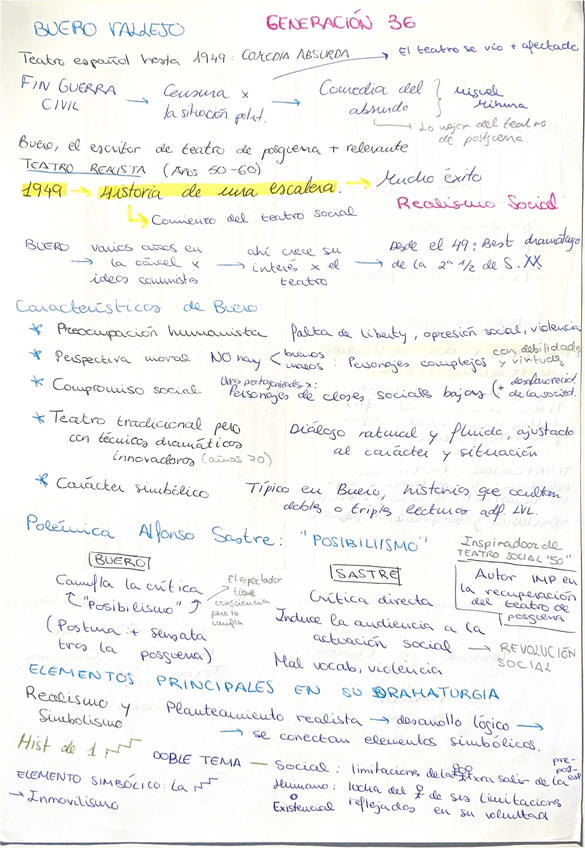 BUERO VALLEJO GENERACIÓN 36
Teatro español hasta 1949: COMEDIA ABSURDA → El teatro se vio + afectado
FIN GUERRA CIVIL → Censura x la situación polít. → Comedia del absurdo } Miguel Mihura
Lo mejor del teatro de posguerra
Buero, el escritor de teatro de posguerra + relevante
TEATRO REALISTA (AÑOS 50-60)
1949 → Historia de una escalera. → Mucho éxito
Realismo Social
Comienzo del teatro social
BUERO → varios años en la cárcel x ideas comunistas → ahí crece su interés x el teatro → Desde el 49: Best dramaturgo de la 2ª 1/2 de S. XX
Características de Buero:
* Preocupación humanista falta de liberty, opresión social, violencia
* Perspectiva moral NO hay < buenos malos : Personajes complejos con debilidades y virtudes
* Compromiso social Personajes de clases sociales bajas (+ desfavorecid. de la socied.
* Teatro tradicional pero con técnicas dramáticas innovadoras (años 70) Diálogo natural y fluido, ajustado al carácter y situación
* Carácter simbólico Típico en Buero, historias que ocultan dobles o triples lecturas
Polémica Alfonso Sastre: "POSIBILIISMO"
Inspirador de TEATRO SOCIAL "50"
BUERO
Camufla la crítica
"Posibilismo"
El espectador tiene consciencia pero lo camufla
(Postura + sensata tras la posguerra)
SASTRE
Crítica directa
Induce la audiencia a la actuación social → REVOLUCIÓN SOCIAL
Mal vocab, violencia
Autor IMP en la recuperación del teatro de posguerra
ELEMENTOS PRINCIPALES EN SU DRAMATURGIA
Realismo y Simbolismo Planteamiento realista → desarrollo lógico →
→ se conectan elementos simbólicos.
Hist de 1
DOBLE TEMA — Social: limitaciones de la salir de la
ELEMENTO SIMBÓLICO: la
Humano: lucha del de sus limitaciones
→ Inmovilismo
o Existencial reflejados en su voluntad